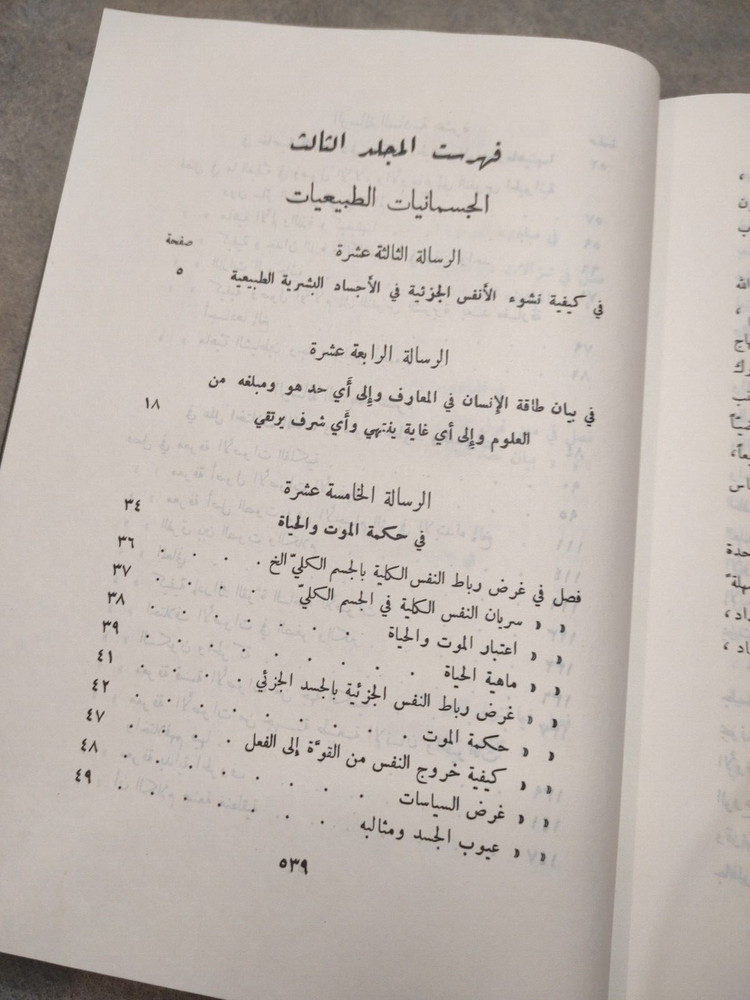 فهرست المجلد الثالث
الجسمانيات الطبيعيات
الرسالة الثالثة عشرة
صفحة
في كيفية نشوء الأنفس الجزئية في الأجساد البشرية الطبيعية ٥
الرسالة الرابعة عشرة
في بيان طاقة الإنسان في المعارف وإلى أَي حد هو ومبلغه من
العلوم وإلى أي غاية ينتهي وأَي شرف يرتقي ١٨
الرسالة الخامسة عشرة
في حكمة الموت والحياة ٣٤
فصل في غرض رباط النفس الكلية بالجسم الكليّ الخ . . . ٣٦
» » سريان النفس الكلية في الجسم الكليّ . . . . . ٣٧
» » اعتبار الموت والحياة . . . . . . ٣٨
» » ماهية الحياة . . . . . . . . ٣٩
» » غرض رباط النفس الجزئية بالجسد الجزئي . . . . ٤١
» » حكمة الموت . . . . . . . . ٤٢
» » كيفية خروج النفس من القوَّة إلى الفعل . . . . ٤٧
» » غرض السياسات . . . . . . . ٤٨
» » عيوب الجسد ومثالبه . . . . . . ٤٩
٥٣٩